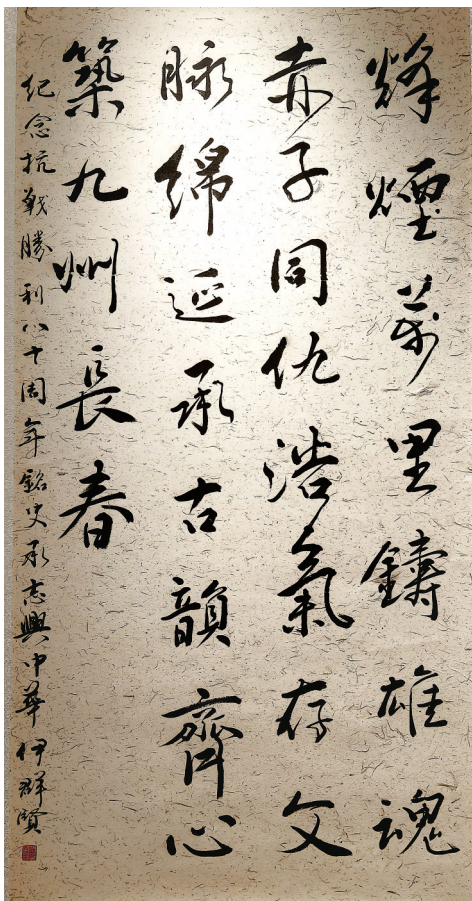 烽煙万里鑄雄魂
赤子同仇浩氣存文
脉綿延承古韻齊心
築九州長春
纪念抗戰勝利八十周年銘史承志興中華伊群賢